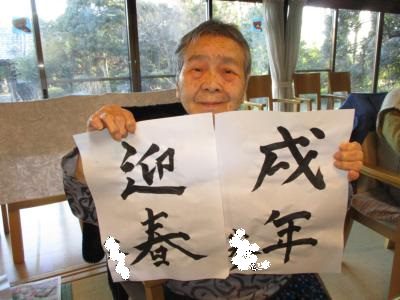 戌年
迎春